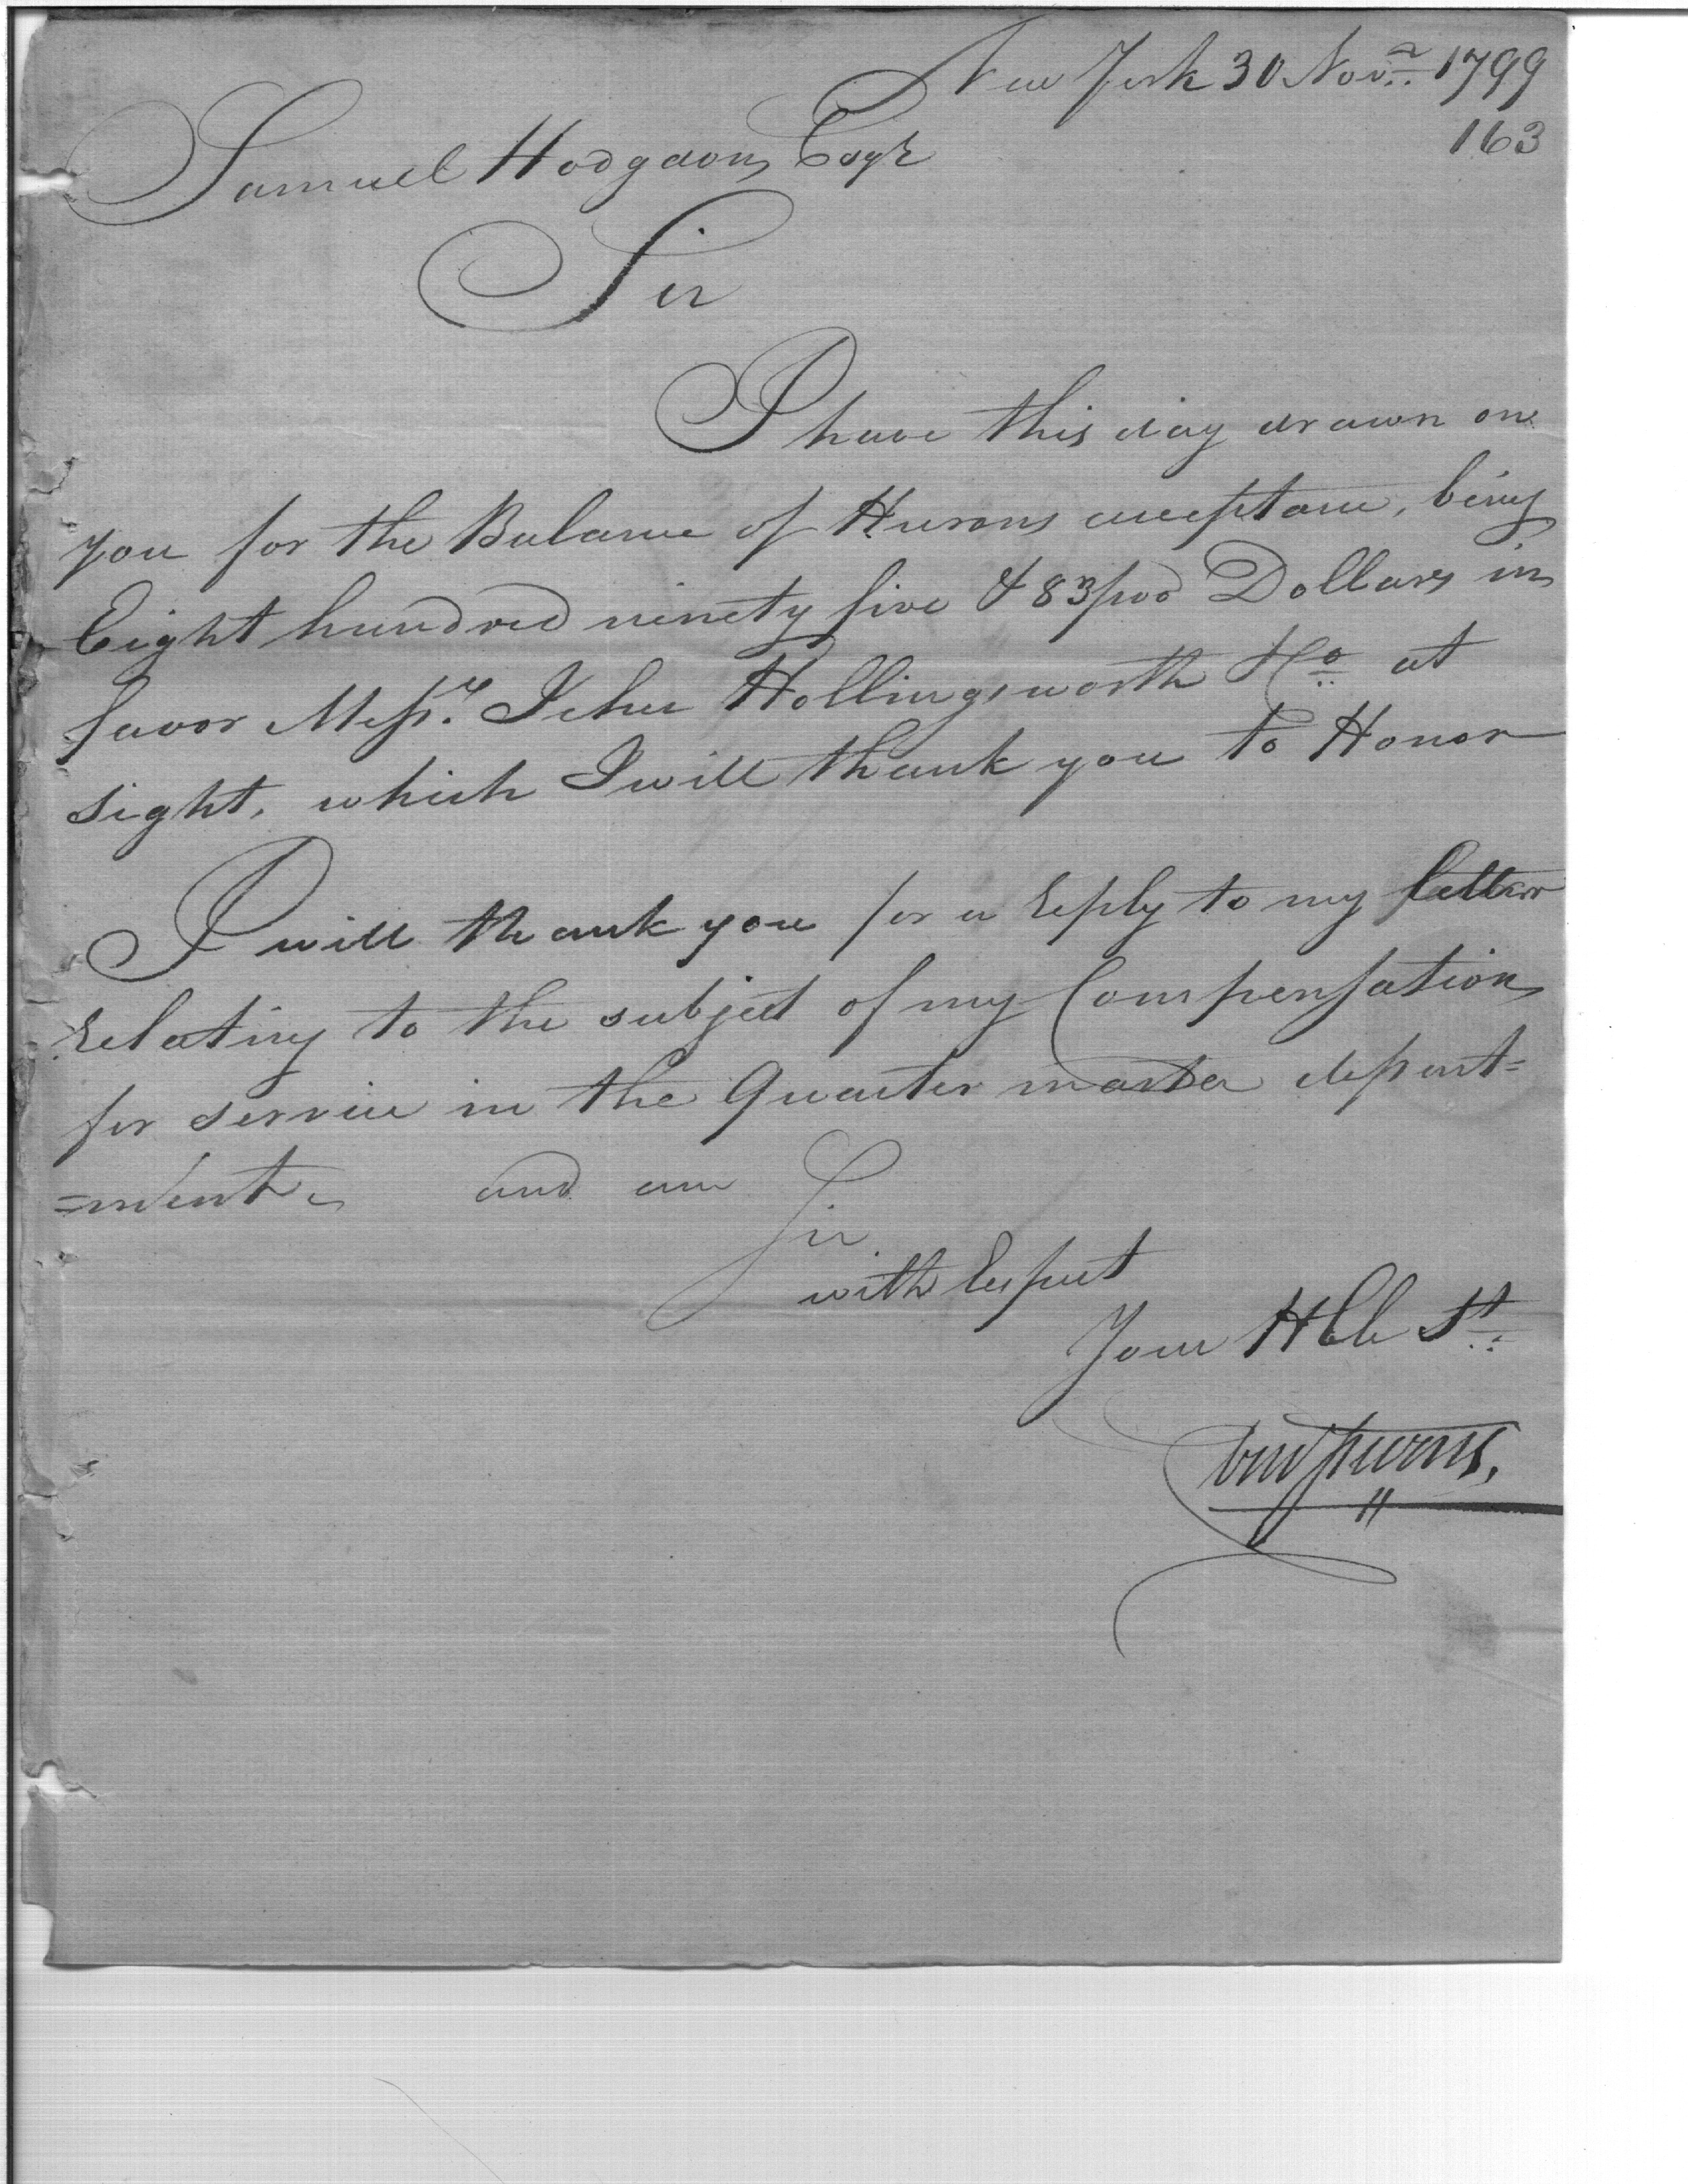 New York 30 Novr. 1799
163
Samuel Hodgdon Esqr
Sir
I have this day drawn on
you for the Balance of Hurons acceptance, being
Eight hundred ninety five & 83/100 Dollars in
favor Messrs. Jehu Hollingsworth & Co. at
sight, which I will thank you to Honor
I will thank you for a reply to my letter
relating to the subject of my Compensation
for service in the Quarter master depart=
=ment. and am
Sir
with respect
Your Hble St.